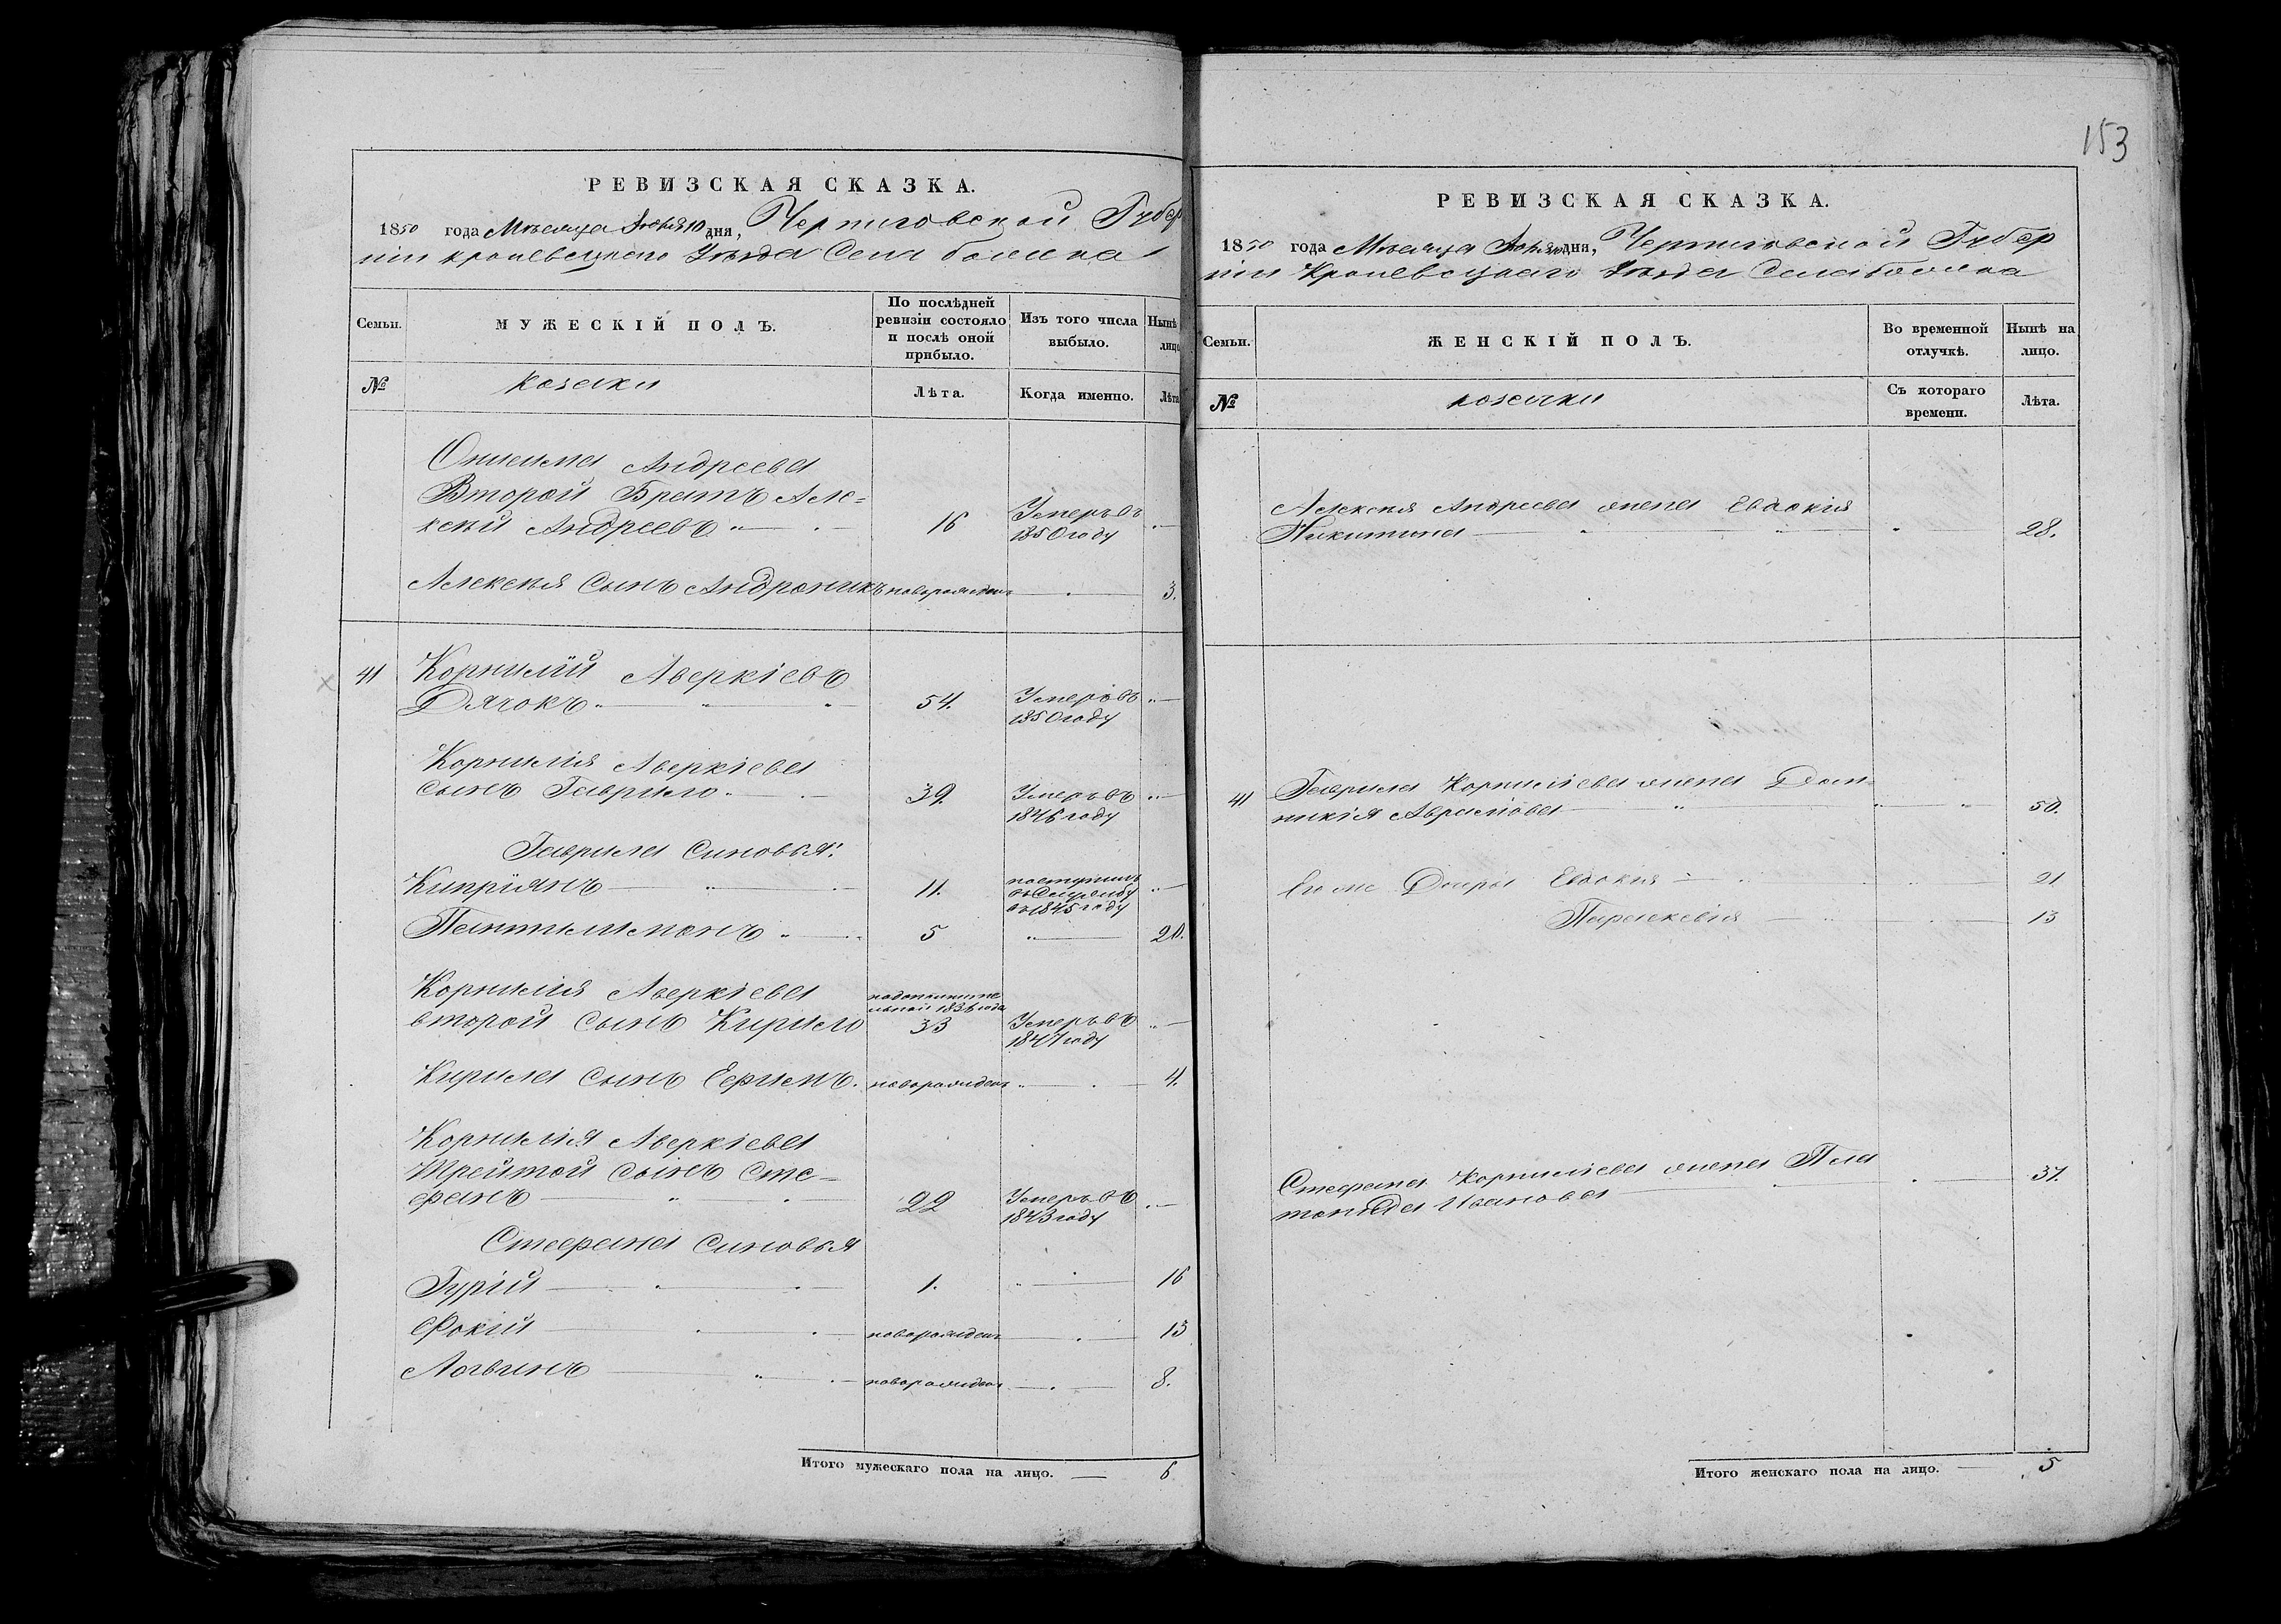 153
РЕВИЗСКАЯ СКАЗКА.
1850 года Мѣсяца 10 дня, Черниговской Губер
ніи кролевецкаго Уѣзда Села
Семьи.
МУЖЕСКІЙ ПОЛЪ.
По послѣдней ревизіи состояло и послѣ оной прибыло.
Изъ того числа выбыло.
Нынѣ
лицо
№
козаки
Лѣта.
Когда именно.
Лѣта
Онисима Андреева
Второй Братъ Але=
ксѣй Андреевъ 16 Умеръ въ 1850 году
Алексѣя Сынъ Андроникъ новорожденъ 3.
41 Корнилій Аверкіевъ
Дячокъ 54. Умеръ въ 1850 году
Корнилія Аверкіева
сынъ Гаврило 39. Умеръ въ 1846 году
Гаврила Синовья:
Кипріянъ 11. поступилъ въ Службу въ 1845 году
Пантилимонъ 5 20.
Корнилія Аверкіева
второй сынъ Кирило 33 Умеръ въ 1847 году
Кирила Сынъ Ефимъ. новорожденъ 4.
Корнилія Аверкіева
Трейтой сынъ Сте=
фанъ 22 Умеръ въ 1843 году
Стефана Синовья
Гурій 1. 16
Фокій новорожденъ 13
Логвинъ новорожденъ 8.
Итого мужескаго пола на лицо. 6
РЕВИЗСКАЯ СКАЗКА.
1850 года Мѣсяца дня, Черниговской Губер
ніи Кролевецкаго Уѣзда Села
Семьи.
ЖЕНСКІЙ ПОЛЪ.
Во временной отлучкѣ.
Нынѣ на лицо.
№
козачки
Съ котораго времени.
Лѣта.
Алексѣя Андреева жена Евдокія
Никитина 28.
41 Гаврила Корниліева жена Дом
никія Аврамова 50.
Его же Дочери Евдокія 21
Параскевія 13
Стефана Корниліева жена Пла
тонида Иванова 37.
Итого женскаго пола на лицо. 5